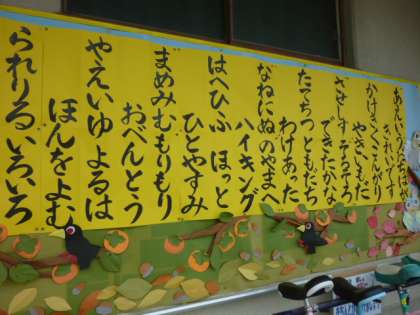 きれいです
かけきくこんがり
やきいもだ
させしすそろそろ
できたかな
たてちつともだち
わけあった
なねにぬのやまへ
ハイキング
はへひふ ほっと
ひとやすみ
まめみむもりもり
おべんとう
やえいゆよるは
ほんをよむ
られりるいろいろ